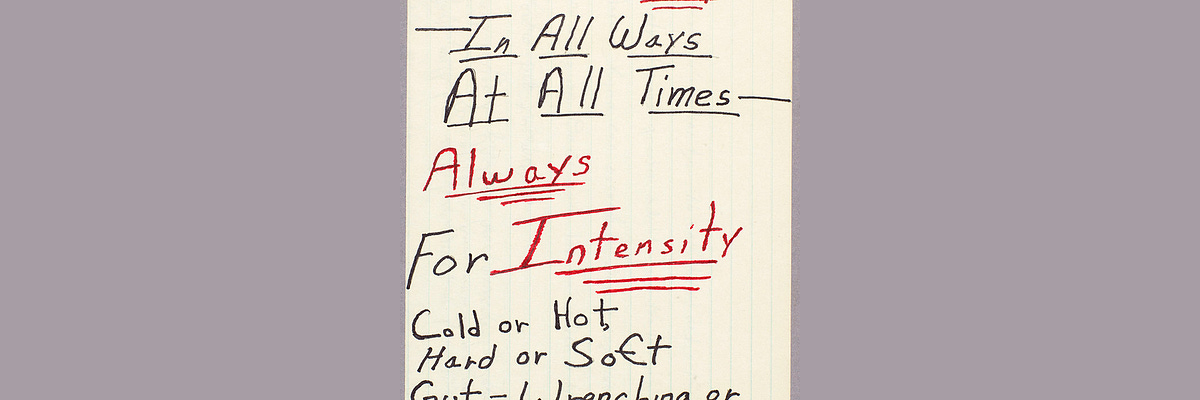 —In All Ways
At All Times—
Always
For Intensity
Cold or Hot,
Hard or Soft
Gut-Wrenching or